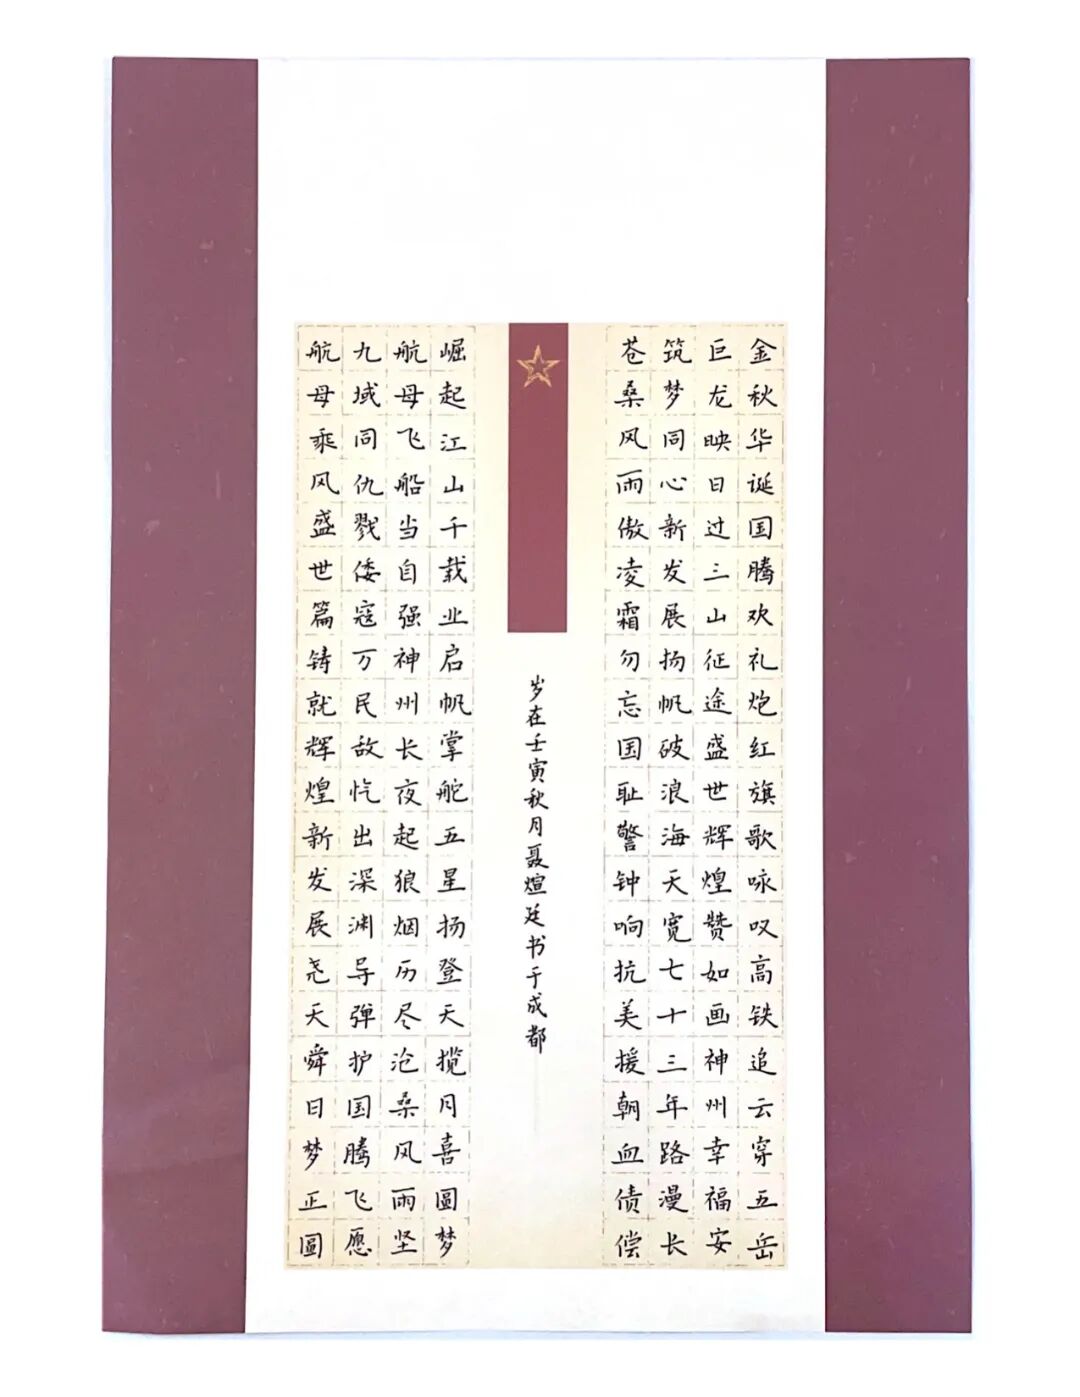 金秋华诞国腾欢礼炮红旗歌咏叹高铁追云穿五岳
巨龙映日过三山征途盛世辉煌赞如画神州幸福安
筑梦同心新发展扬帆破浪海天宽七十三年路漫长
苍桑风雨傲凌霜勿忘国耻警钟响抗美援朝血债偿
岁在壬寅秋月聂煊廷书于成都
崛起江山千载业启帆掌舵五星扬登天揽月喜圓梦
航母飞船当自强神州长夜起狼烟历尽沧桑风雨坚
九域同仇戮倭寇万民敌忾出深渊导弹护国腾飞愿
航母乘风盛世篇铸就辉煌新发展尧天舜日梦正圓